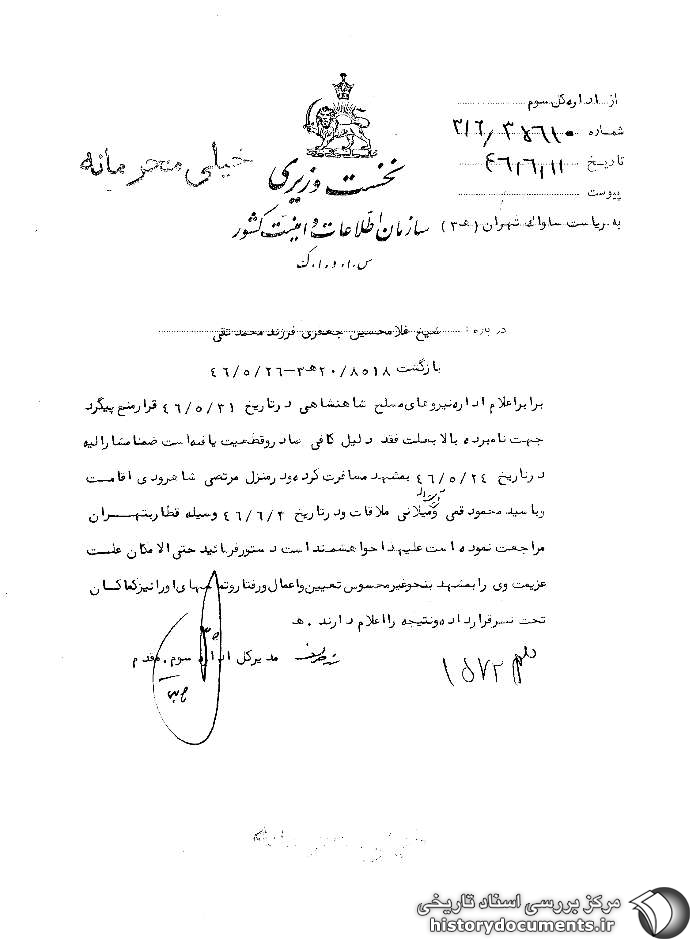 از اداره کل سوم
شماره ۳۱۶/۳۵۶۱۰
تاریخ ۴۶/۶/۱۱
پیوست
خیلی محرمانه
نخست وزیری
سازمان اطلاعات و امنیت کشور
س.ا.و.ا.ک
به ریاست ساواک تهران (ه ۳)
درباره : شیخ غلامحسین جعفری فرزند محمد تقی
بازگشت ۲۰/۸۵۱۸ ه ۳-۴۶/۵/۲۶
برابر اعلام اداره نیروهای مسلح شاهنشاهی در تاریخ ۴۶/۵/۳۱ قرار منع پیگرد
جهت نامبرده بالا بعلت فقد دلیل کافی صادر و قطعیت یافته است ضمنا مشارالیه
در تاریخ ۴۶/۵/۲۴ بمشهد مسافرت کرده و در منزل مرتضی شاهرودی اقامت
و با سید محمود قمی و میلانی ملاقات و در تاریخ ۴۶/۶/۲ وسیله قطار بتهران
مراجعت نموده است علیهذا خواهشمند است دستور فرمائید حتی الامکان علت
عزیمت وی را بمشهد بنحو غیر محسوس تعیین و اعمال و رفتار و تماسهای او را نیز کماکان
تحت نظر قرار داده و نتیجه را اعلام دارند . ه
مدیر کل اداره سوم . مقدم
۱۵۷۲
مرکز بررسی اسناد تاریخی
historydocuments.ir